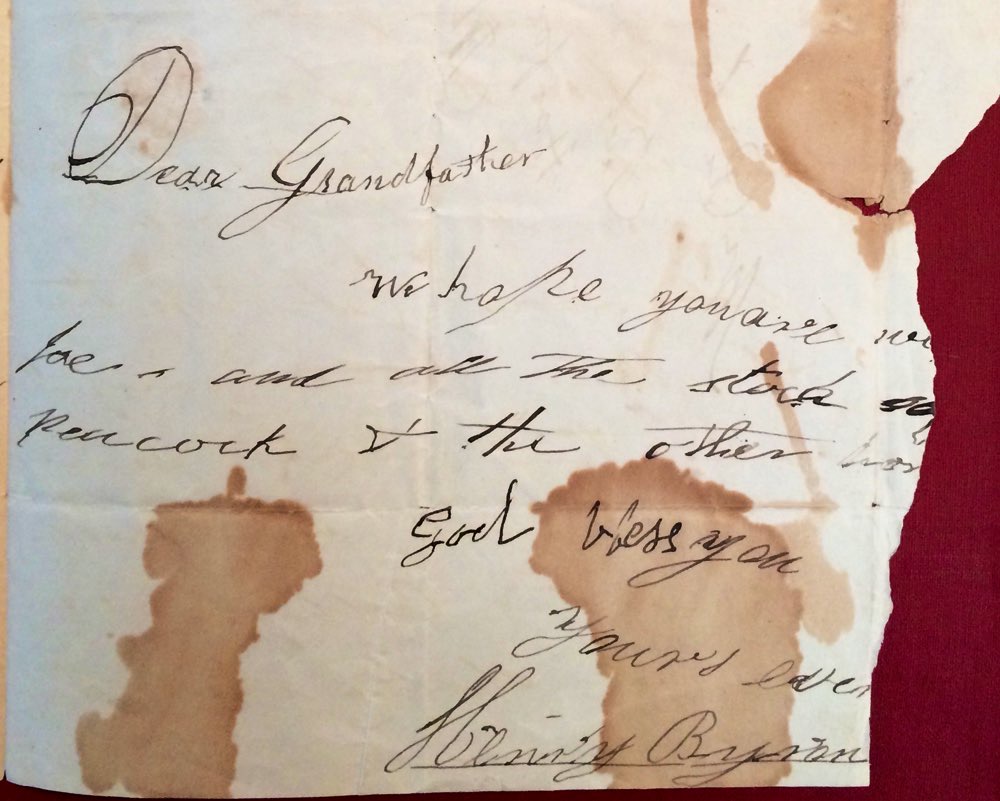 Dear Grandfather
we hope you are
Joe - and all the stock
Peacock & the other
God bless you
yours ever
Henry Byron